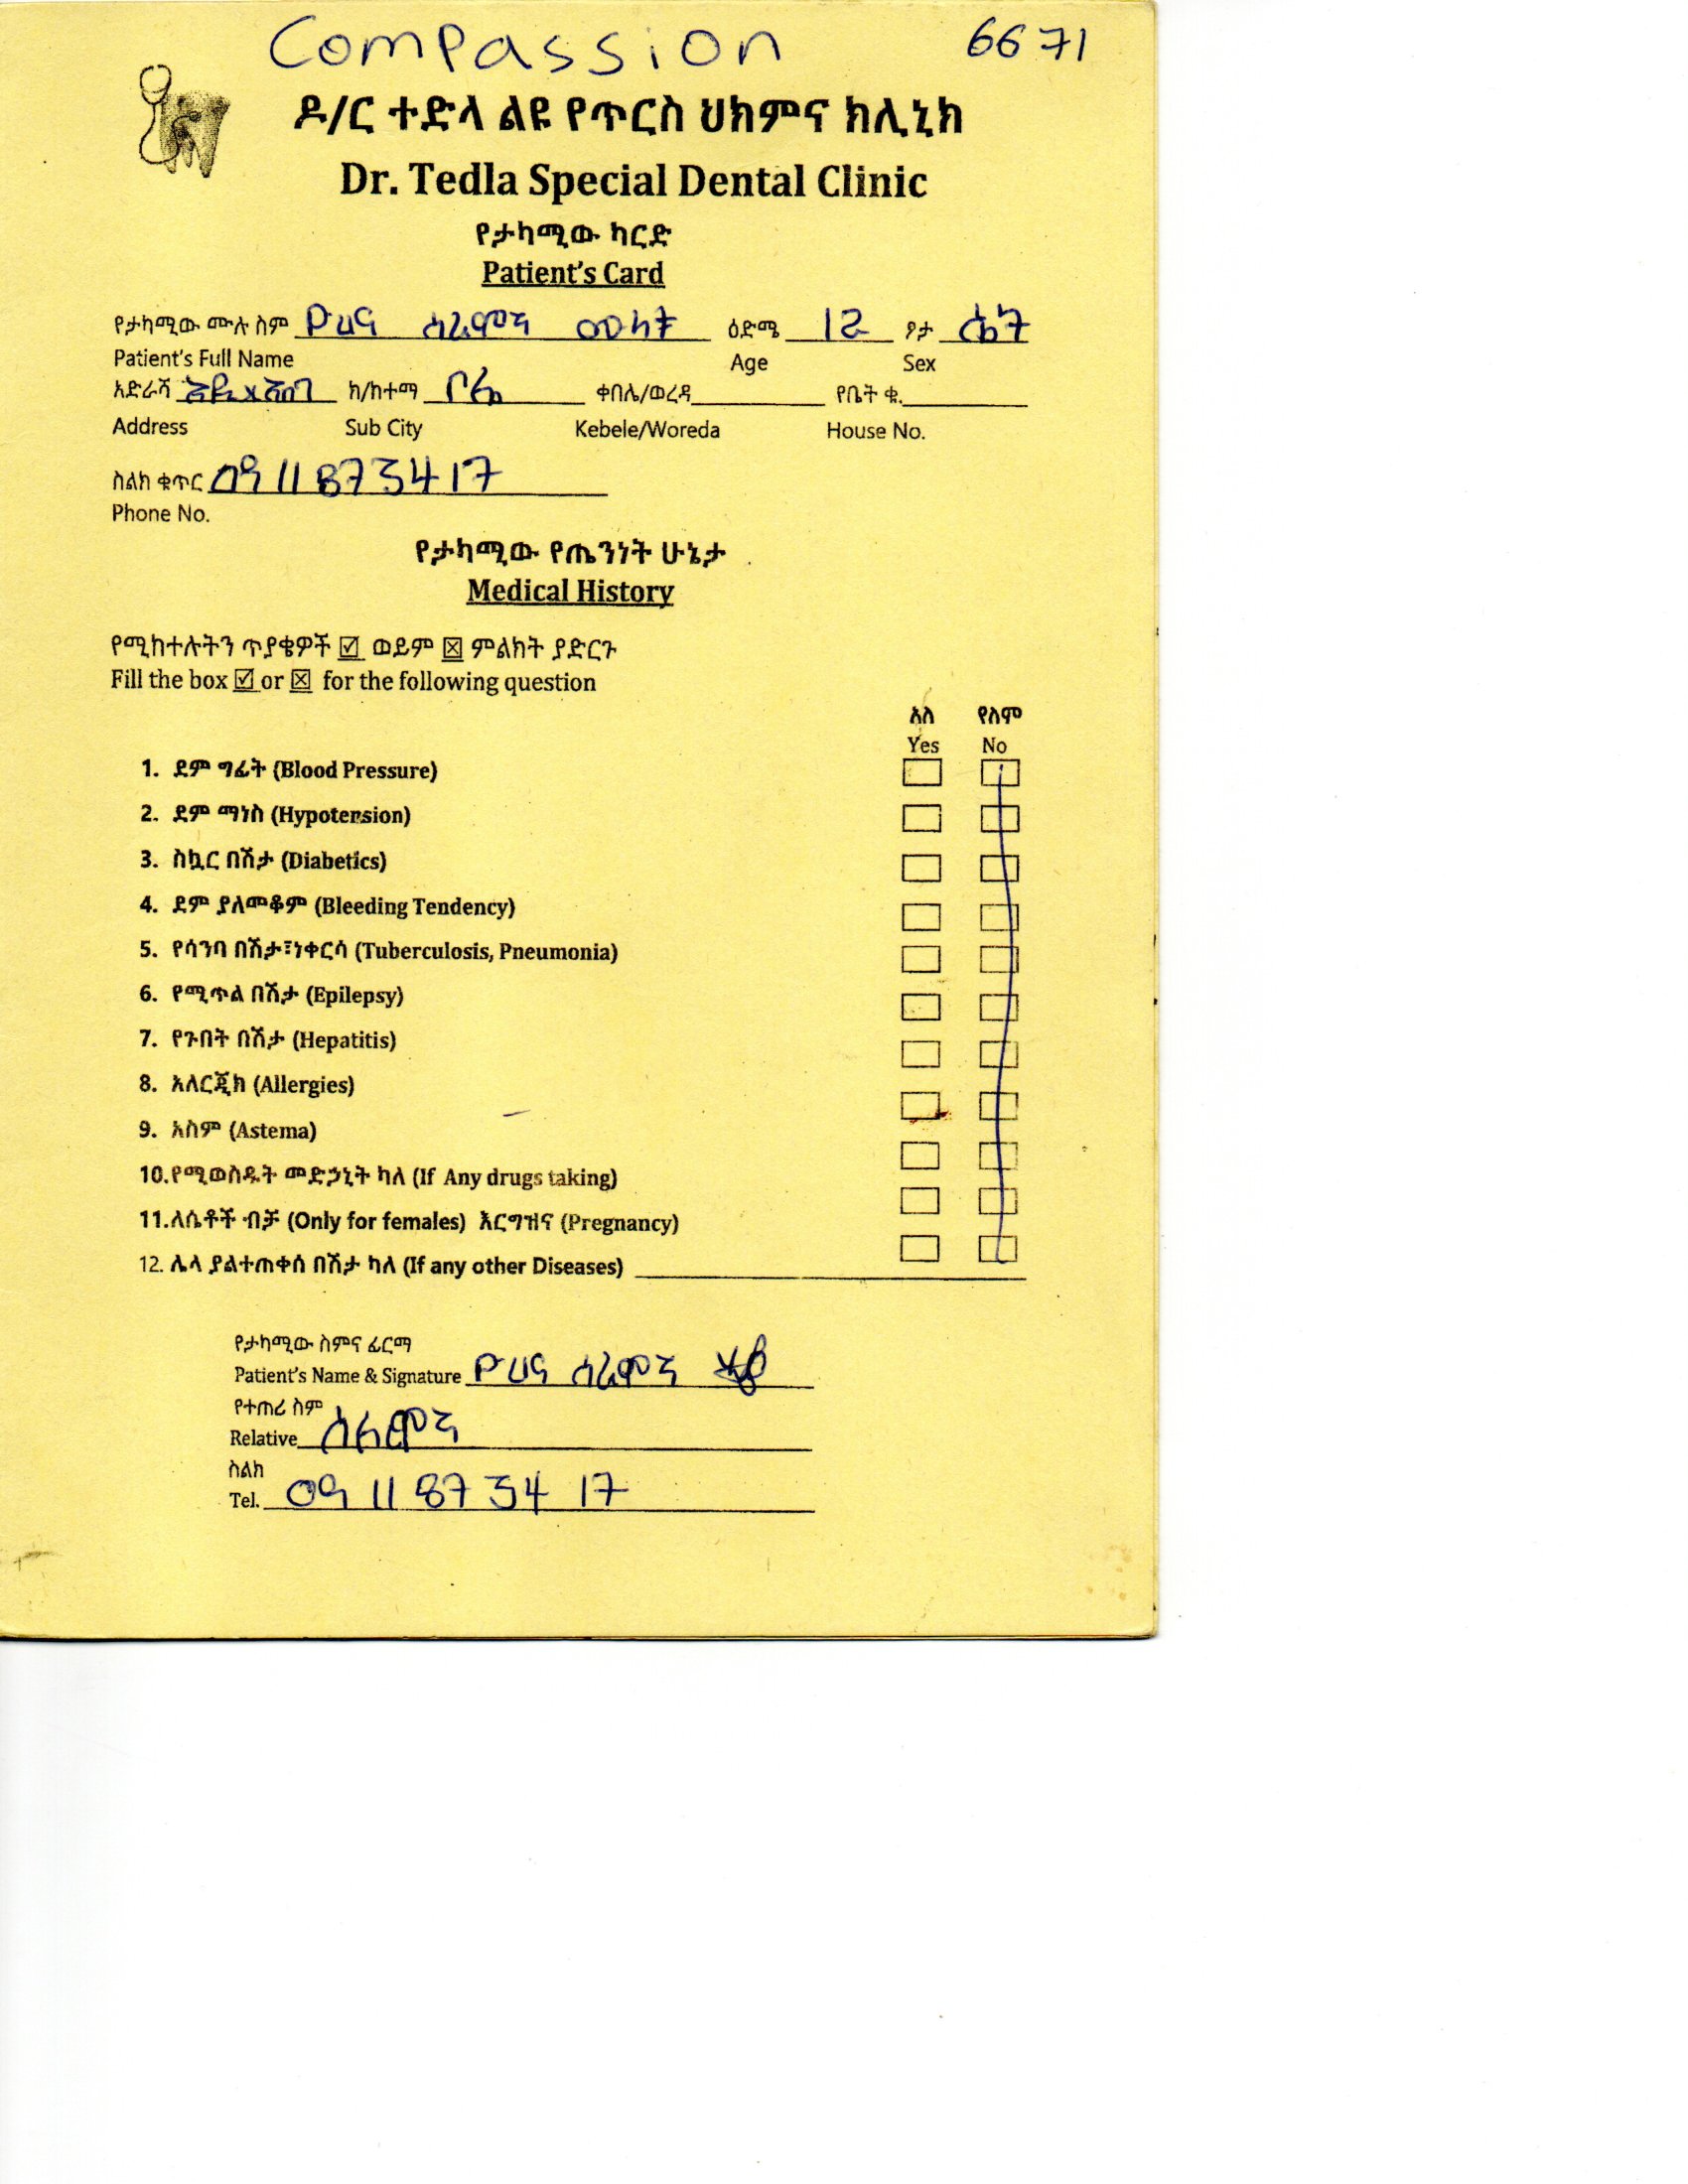 Compassion 6671
ዶ/ር ተድላ ልዩ የጥርስ ህክምና ክሊኒክ
Dr. Tedla Special Dental Clinic
የታካሚው ካርድ
Patient's Card
የታካሚው ሙሉ ስም ዕድሜ 12 ፆታ ሴት
Patient's Full Name Age Sex
አድራሻ ክ/ከተማ ቦሌ ቀበሌ/ወረዳ የቤት ቁ.
Address Sub City Kebele/Woreda House No.
ስልክ ቁጥር 0911873417
Phone No.
የታካሚው የጤንነት ሁኔታ
Medical History
የሚከተሉትን ጥያቄዎች ☑ ወይም ☒ ምልክት ያድርጉ
Fill the box ☑ or ☒ for the following question
አለ የለም
Yes No
1. ደም ግፊት (Blood Pressure)
2. ደም ማነስ (Hypotension)
3. ስኳር በሽታ (Diabetics)
4. ደም ያለመቆም (Bleeding Tendency)
5. የሳንባ በሽታ፣ነቀርሳ (Tuberculosis, Pneumonia)
6. የሚጥል በሽታ (Epilepsy)
7. የጉበት በሽታ (Hepatitis)
8. አለርጂክ (Allergies)
9. አስም (Astema)
10.የሚወስዱት መድኃኒት ካለ (If Any drugs taking)
11.ለሴቶች ብቻ (Only for females) እርግዝና (Pregnancy)
12. ሌላ ያልተጠቀሰ በሽታ ካለ (If any other Diseases)
የታካሚው ስምና ፊርማ
Patient's Name & Signature
የተጠሪ ስም
Relative
ስልክ
Tel. 0911 87 34 17